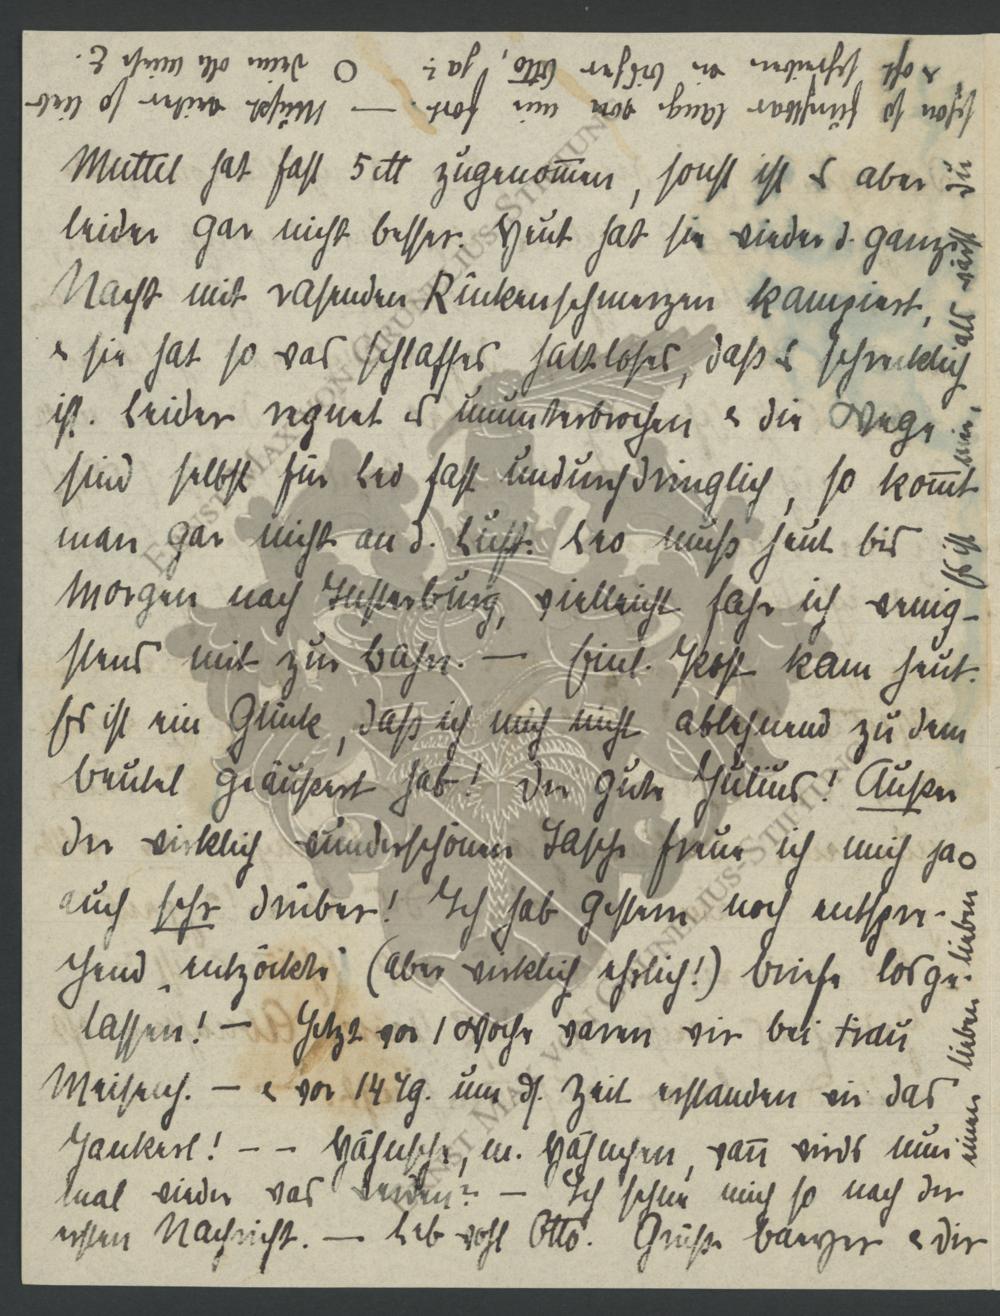 Muttel hat fast 5 ℔ zugenom̅en, sonst ist es aber
leider gar nicht besser. Heut hat sie wieder d. ganze
Nacht mit rasenden Rückenschmerzen kampiert,
& sie hat so was schlaffes haltloses, daß es schrecklich
ist. Leider regnet es ununterbrochen & die Wege
sind selbst für Leo fast undurchdringlich, so kom̅t
man gar nicht an d. Luft. Leo muß heut bis
morgen nach Insterburg, vielleicht fahr ich wenig-
stens mit zur Bahn. — Eine Post kam heut.
Es ist ein Glück, daß ich mich nicht ablehnend zu dem
Beutel geäußert hab! Der gute Julius! Außer
der wirklich wunderschönen Tasche freue ich mich ja
auch sehr drüber! Ich hab gestern noch entspre-
chend „entzöckte" (aber wirklich ehrlich!) Briefe losge-
lassen! — Jetzt vor 1 Woche waren wir bei Frau
— & vor 14 Tg. um ds. Zeit erstanden wir das
Jankerl! — — Hähnsche, m. Hähnchen, wan̅ wirds nun
mal wieder was werden? — Ich sehne mich so nach der
ersten Nachricht. — Leb wohl Otto. Grüße & dir
einen lieben lieben O
Es ist mir, als wärst du
schon so furchtbar lang von mir fort. — Mußt wieder so lieb
& oft schreiben Otto, ja? O Dein